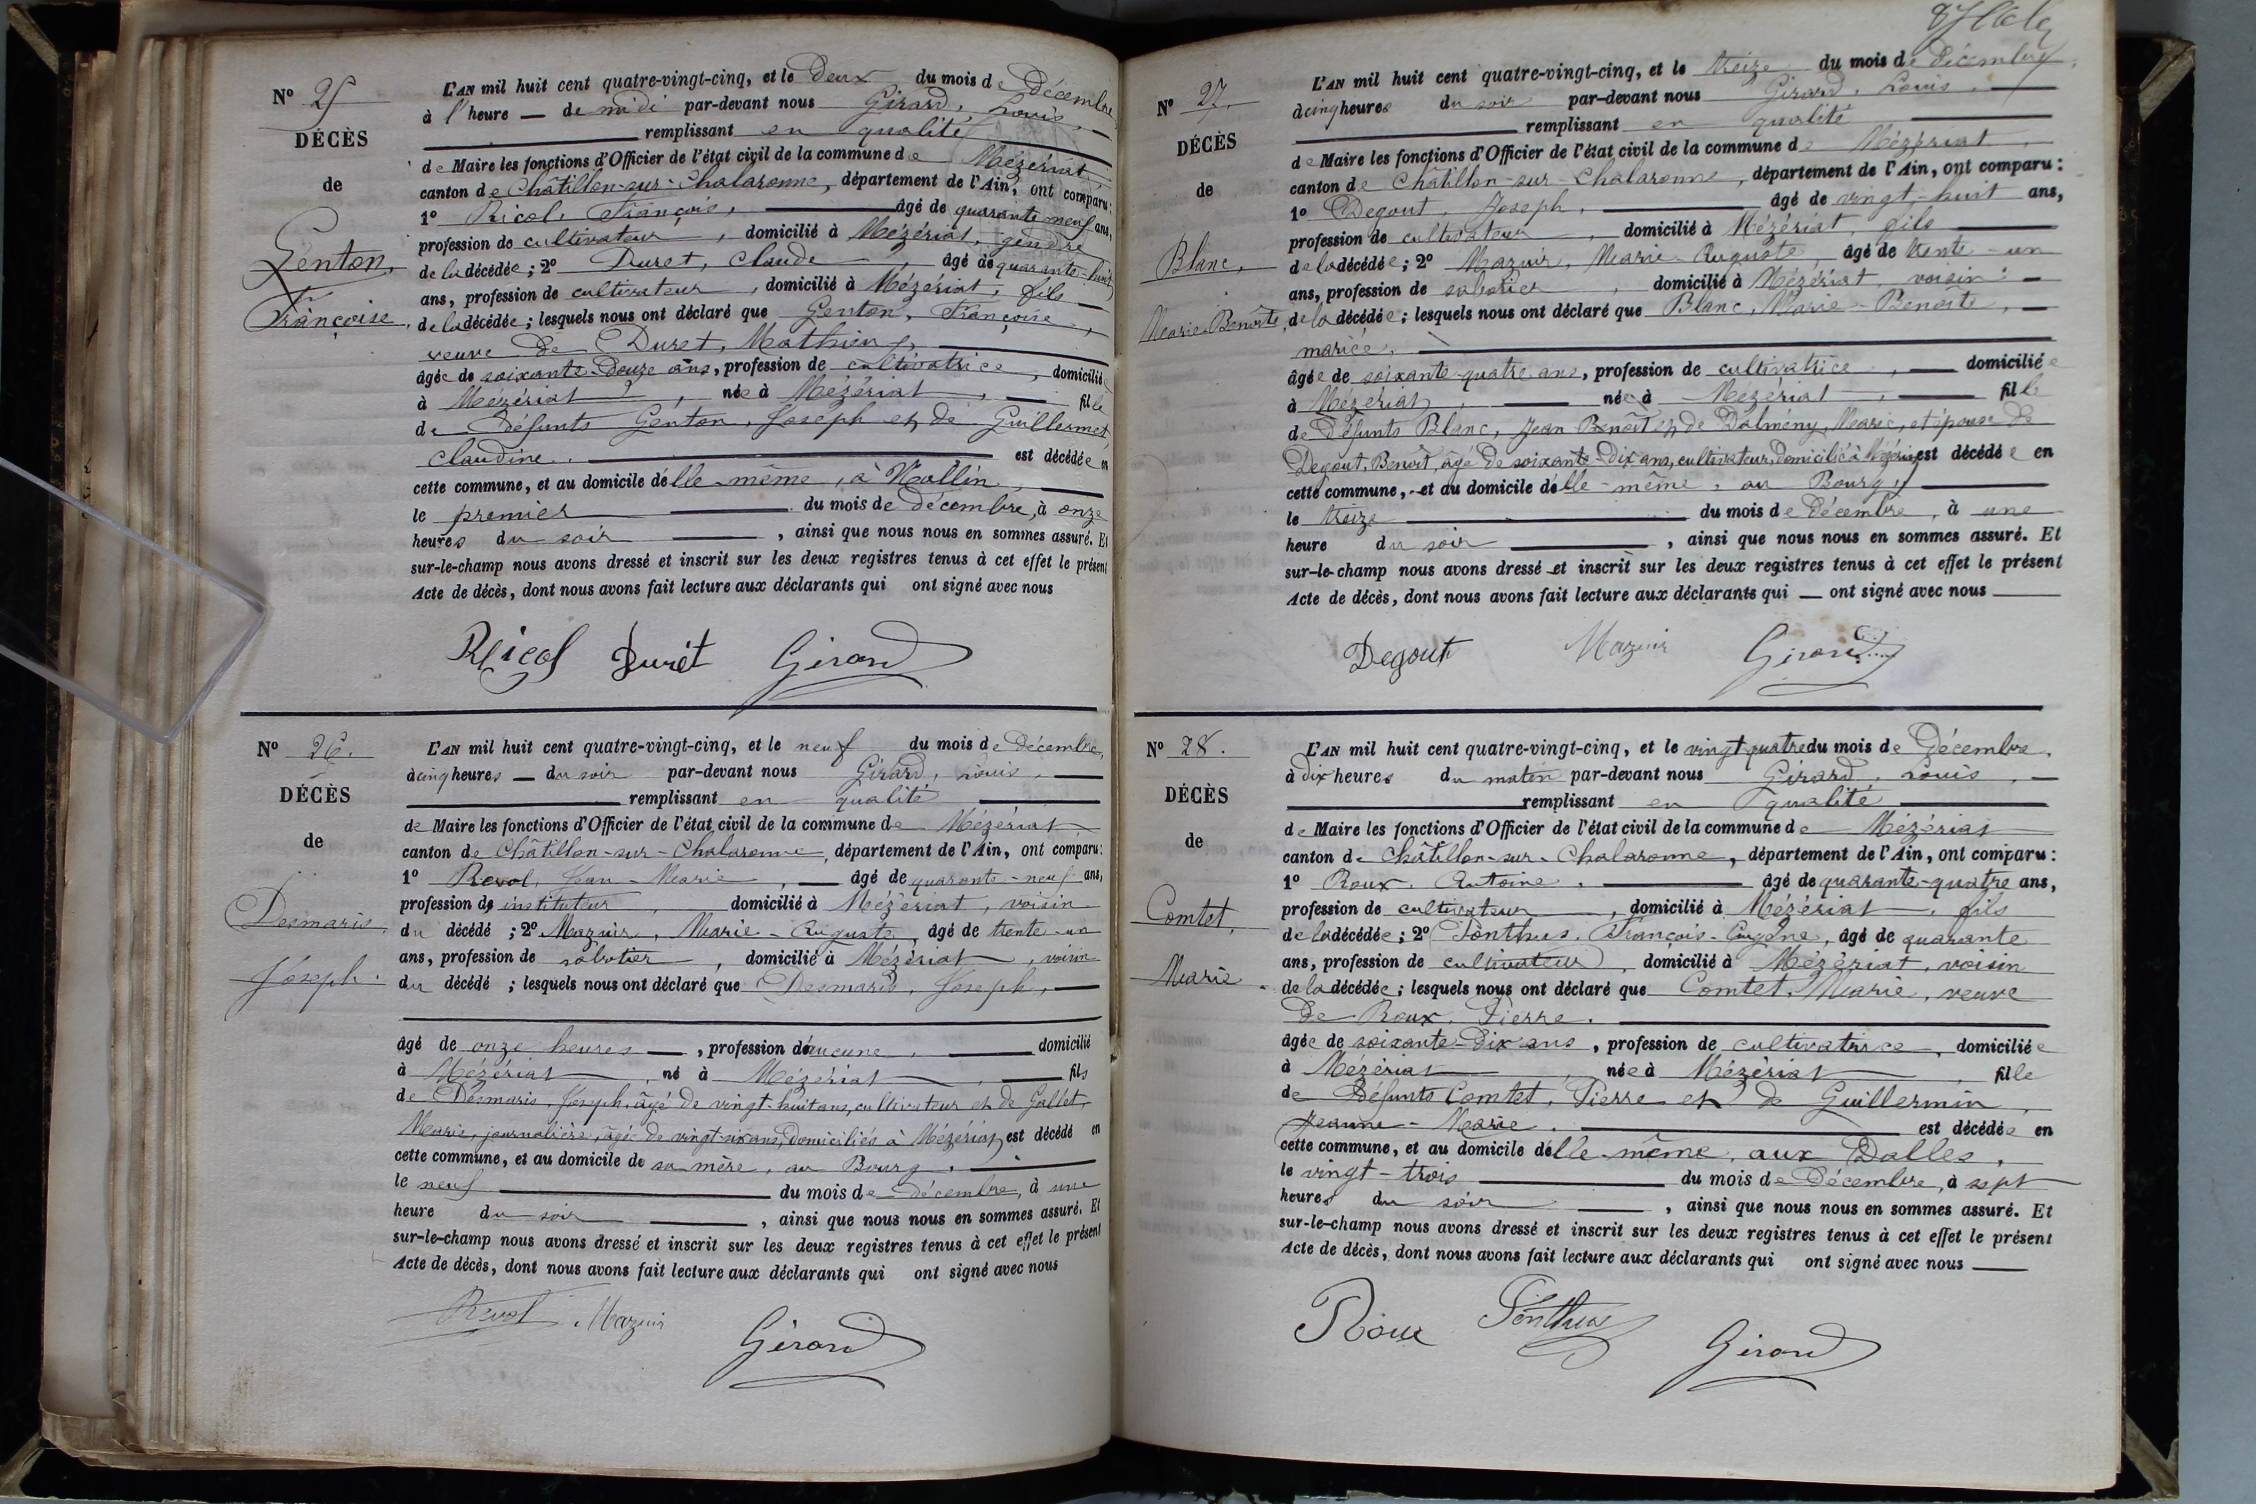 N° 25
DÉCÈS
de
Genton,
Françoise,
L'AN mil huit cent quatre-vingt-cinq, et le Deux du mois de Décembre
à l'heure — de midi par-devant nous Girard, Louis,
remplissant en qualité
de Maire les fonctions d'Officier de l'état civil de la commune de Mézériat,
canton de Châtillon-sur-Chalaronne, département de l'Ain, ont comparu:
1° Ricol, François, âgé de quarante neuf ans,
profession de cultivateur, domicilié à Mézériat, gendre
de la décédée; 2° Duret, Claude, âgé de quarante-huit
ans, profession de cultivateur, domicilié à Mézériat, fils
de la décédée; lesquels nous ont déclaré que Genton, Françoise,
veuve de Duret, Mathieu,
âgée de soixante-douze ans, profession de cultivatrice, domiciliée
à Mézériat, née à Mézériat, fille
de défunts Genton, Joseph et de Guillermet,
Claudine. est décédée en
cette commune, et au domicile d'elle-même, à
le premier du mois de décembre, à onze
heures du soir, ainsi que nous nous en sommes assuré. Et
sur-le-champ nous avons dressé et inscrit sur les deux registres tenus à cet effet le présent
Acte de décès, dont nous avons fait lecture aux déclarants qui ont signé avec nous
Ricol Duret Girard
N° 26.
DÉCÈS
de
Desmaris,
Joseph.
L'AN mil huit cent quatre-vingt-cinq, et le neuf du mois de Décembre,
à cinq heures — du soir par-devant nous Girard, Louis,
remplissant en qualité
de Maire les fonctions d'Officier de l'état civil de la commune de Mézériat
canton de Châtillon-sur-Chalaronne, département de l'Ain, ont comparu:
1° Revol, Jean-Marie, âgé de quarante-neuf ans,
profession de instituteur, domicilié à Mézériat, voisin
du décédé; 2° Mazuir, Marie-Auguste, âgé de trente-un
ans, profession de sabotier, domicilié à Mézériat, voisin
du décédé; lesquels nous ont déclaré que Desmaris, Joseph,
âgé de onze heures, profession d'aucune, domicilié
à Mézériat, né à Mézériat, fils
de Desmaris, Joseph, âgé de vingt-huit ans, cultivateur et de Gallet,
Marie, journalière, âgée de vingt-six ans, domiciliés à Mézériat, est décédé en
cette commune, et au domicile de sa mère, au Bourg.
le neuf du mois de décembre, à une
heure du soir, ainsi que nous nous en sommes assuré. Et
sur-le-champ nous avons dressé et inscrit sur les deux registres tenus à cet effet le présent
Acte de décès, dont nous avons fait lecture aux déclarants qui ont signé avec nous
Revol Mazuir Girard
N° 27.
DÉCÈS
de
Blanc,
Marie-Benoîte,
L'AN mil huit cent quatre-vingt-cinq, et le treize du mois de décembre,
à cinq heures du soir par-devant nous Girard, Louis,
remplissant en qualité
de Maire les fonctions d'Officier de l'état civil de la commune de Mézériat,
canton de Châtillon-sur-Chalaronne, département de l'Ain, ont comparu:
1° Degout, Joseph, âgé de vingt-huit ans,
profession de cultivateur, domicilié à Mézériat, fils
de la décédée; 2° Mazuir, Marie-Auguste, âgé de trente-un
ans, profession de sabotier, domicilié à Mézériat, voisin
de la décédée; lesquels nous ont déclaré que Blanc, Marie-Benoîte,
mariée,
âgée de soixante-quatre ans, profession de cultivatrice, domiciliée
à Mézériat, née à Mézériat, fille
de Défunts Blanc, Jean Benoît et de Dalmény, Marie, et épouse de
Degout, Benoît, âgé de soixante-dix ans, cultivateur, domicilié à Mézériat est décédée en
cette commune, et au domicile d'elle-même, au Bourg,
le treize du mois de Décembre, à une
heure du soir, ainsi que nous nous en sommes assuré. Et
sur-le-champ nous avons dressé et inscrit sur les deux registres tenus à cet effet le présent
Acte de décès, dont nous avons fait lecture aux déclarants qui — ont signé avec nous
Degout Mazuir Girard
N° 28.
DÉCÈS
de
Comtet,
Marie.
L'AN mil huit cent quatre-vingt-cinq, et le vingt-quatre du mois de Décembre,
à dix heures du matin par-devant nous Girard, Louis,
remplissant en qualité
de Maire les fonctions d'Officier de l'état civil de la commune de Mézériat
canton de Châtillon-sur-Chalaronne, département de l'Ain, ont comparu:
1° Roux, Antoine, âgé de quarante-quatre ans,
profession de cultivateur, domicilié à Mézériat, fils
de la décédée; 2° Ponthus, François-Eugène, âgé de quarante
ans, profession de cultivateur, domicilié à Mézériat, voisin
de la décédée; lesquels nous ont déclaré que Comtet, Marie, veuve
de Roux, Pierre.
âgée de soixante-dix ans, profession de cultivatrice, domiciliée
à Mézériat, née à Mézériat, fille
de Défunts Comtet, Pierre et de Guillermin,
Jeanne-Marie. est décédée en
cette commune, et au domicile d'elle-même, aux Dalles,
le vingt-trois du mois de Décembre, à sept
heures du soir, ainsi que nous nous en sommes assuré. Et
sur-le-champ nous avons dressé et inscrit sur les deux registres tenus à cet effet le présent
Acte de décès, dont nous avons fait lecture aux déclarants qui ont signé avec nous
Roux Ponthus Girard